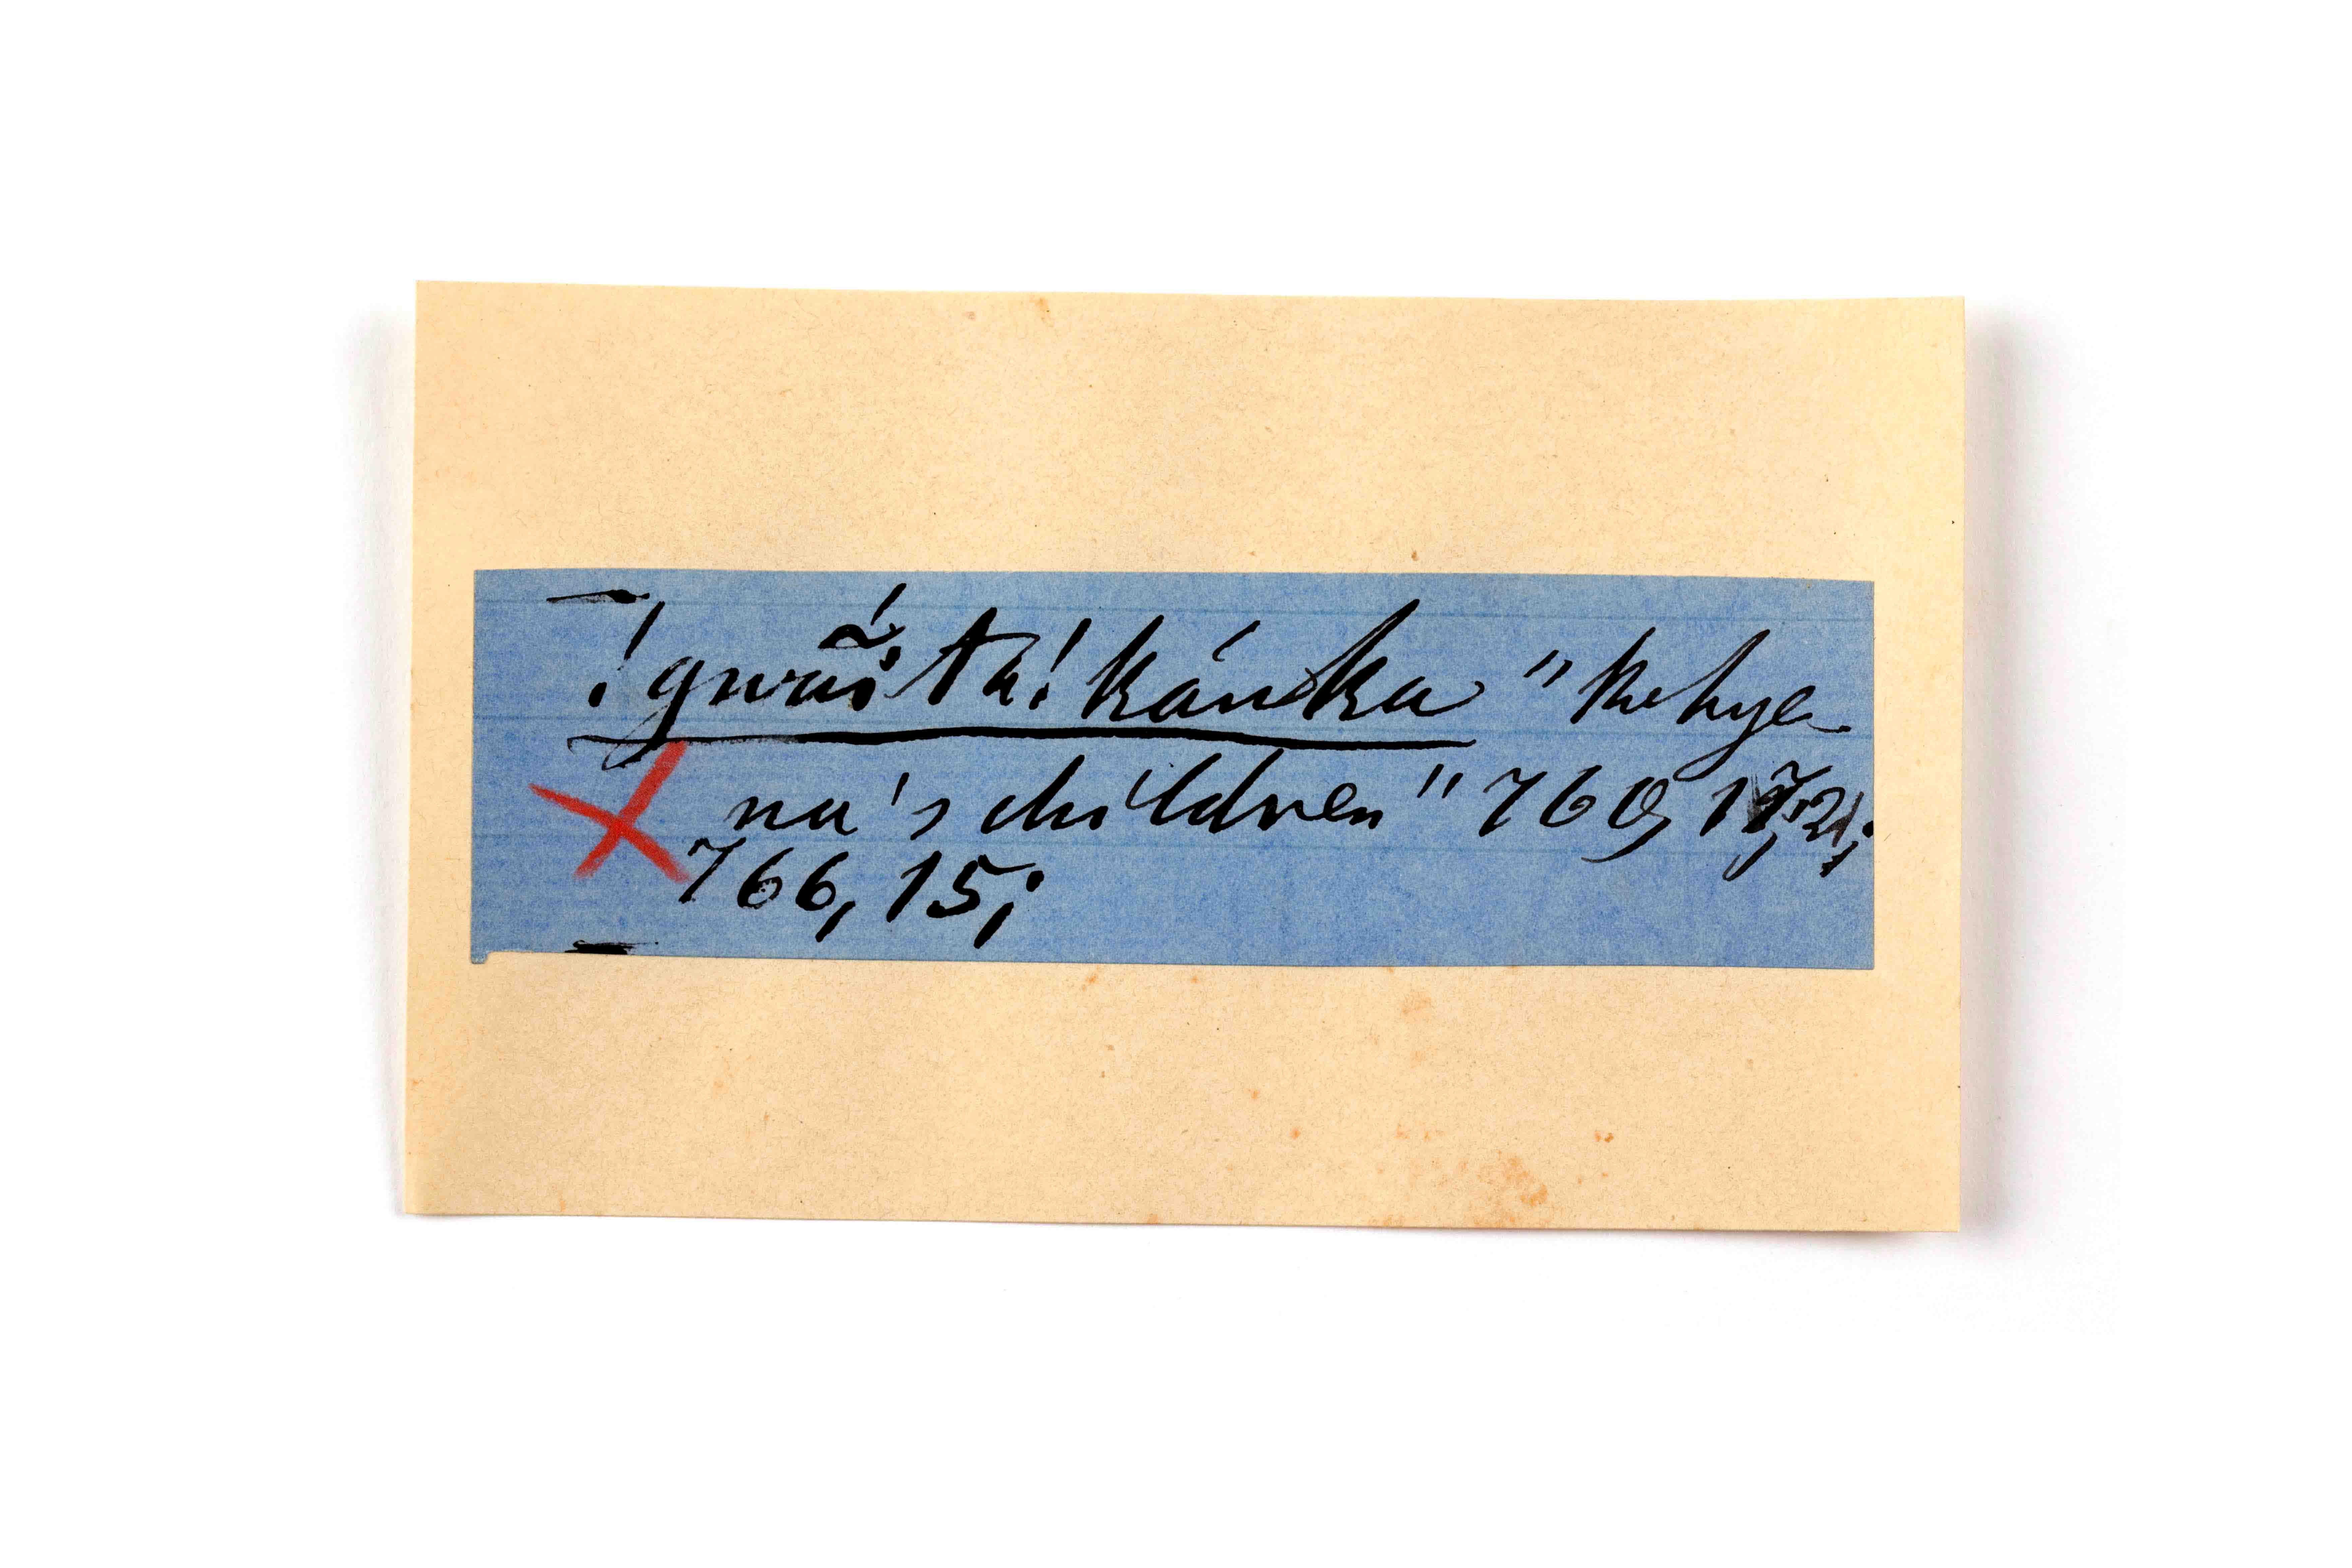 !gwã́ĭta!kánka "the hye
na's children" 760, 17, 21;
766, 15;